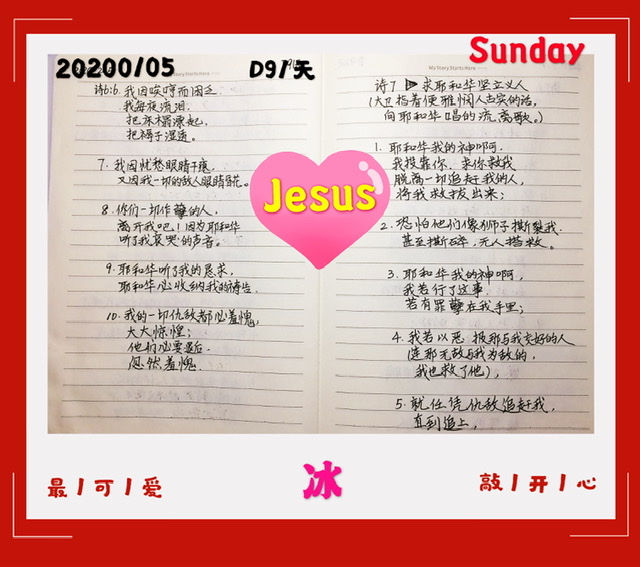 20200/05
D91天
Sunday
My Story Starts Here
My Story Starts Here
诗6:6. 我因唉哼而困乏.
我每夜流泪.
把床榻漂起,
把褥子湿透。
7. 我因忧愁眼睛干瘪,
又因我一切的敌人眼睛昏花。
8. 你们一切作孽的人,
离开我吧!因为耶和华
听了我哀哭的声音。
9. 耶和华听了我的恳求,
耶和华必收纳我的祷告.
10. 我的一切仇敌都必羞愧,
大大惊惶;
他们必要退后.
忽然羞愧.
Jesus
诗7 求耶和华坚立义人
(大卫指着便雅悯人古实的话,
向耶和华唱的流离歌。)
1. 耶和华我的神啊.
我投靠你. 求你救我
脱离一切追赶我的人,
将我救拔出来;
2. 恐怕他们像狮子撕裂我.
甚至撕碎,无人搭救。
3. 耶和华我的神啊,
我若行了这事.
若有罪孽在我手里;
4. 我若以恶 报那与我交好的人
(连那无故与我为敌的,
我也救了他),
5. 就任凭仇敌追赶我,
直到追上,
最 | 可 | 爱
冰
敲 | 开 | 心